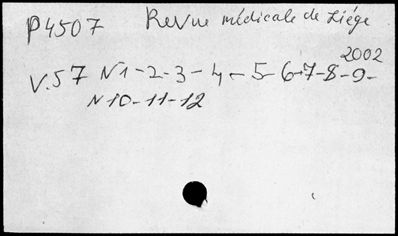 P4507 Revue médicale de Liége
2002
V.57 N1-2-3-4-5-6-7-8-9-
N10-11-12